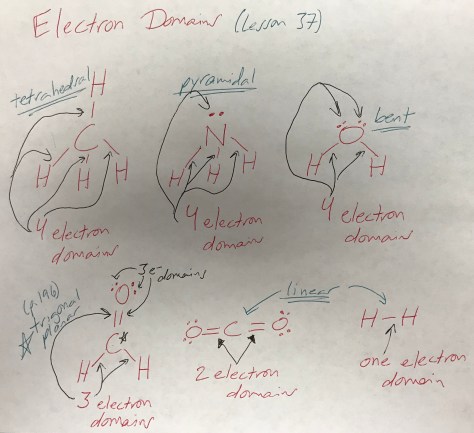 Electron Domains (Lesson 37)
tetrahedral
H
C
H H H
4 electron
domains
pyramidal
N
H H H
4 electron
domains
bent
O
H H
4 electron
domains
3 e-
domains
(p.196)
trigonal
planar
O
C
H H
3 electron
domains
linear
O=C=O
2 electron
domains
H-H
one electron
domain